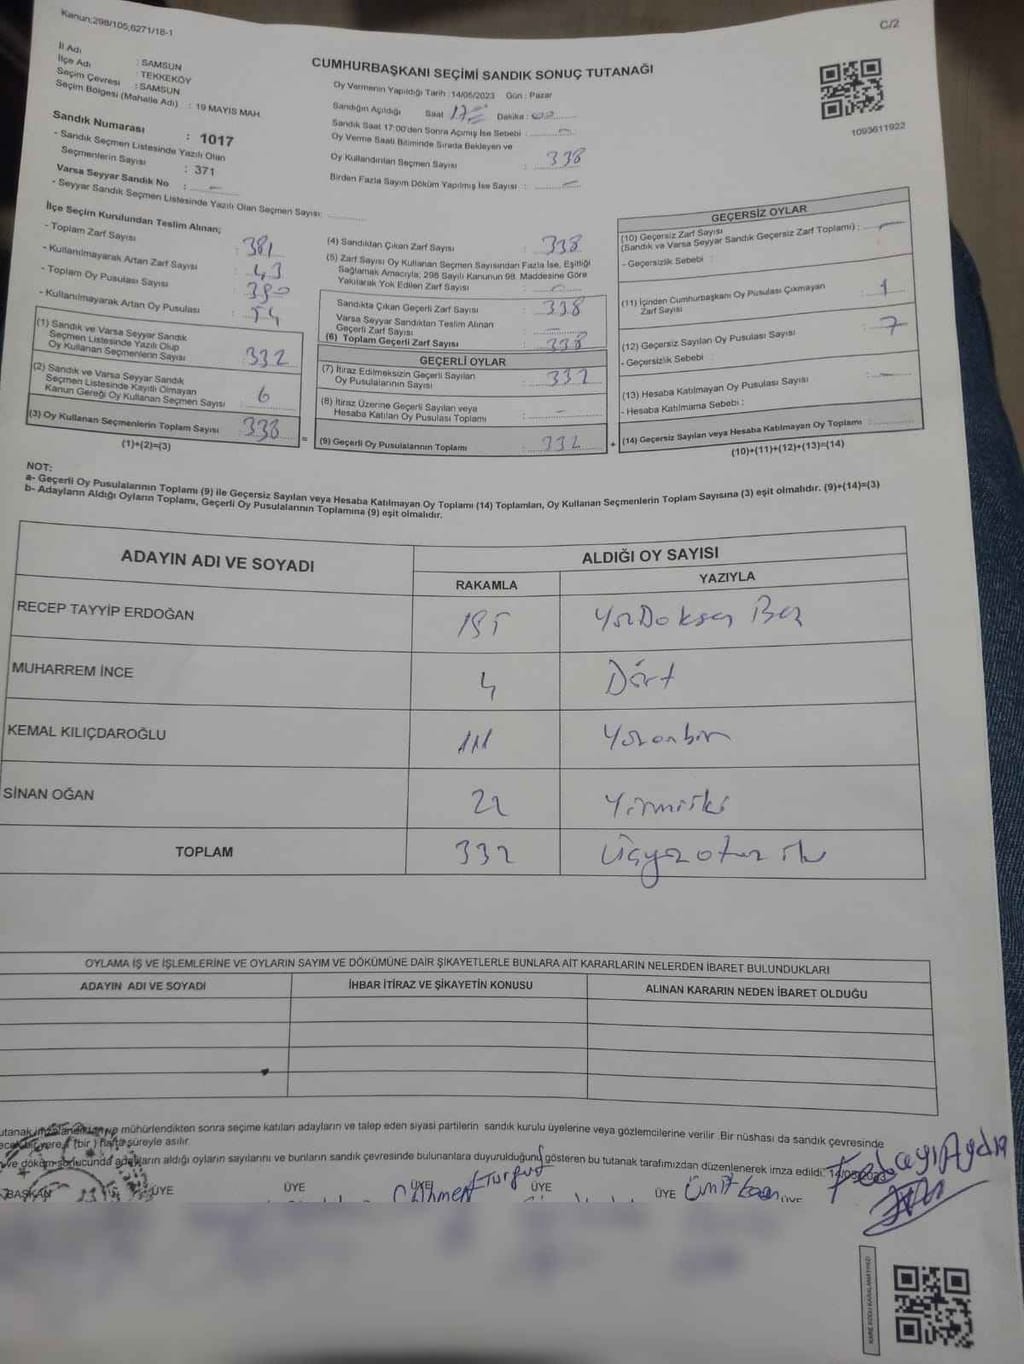 Kanun;298/105;6271/18-1
C/2
İl Adı : SAMSUN
İlçe Adı : TEKKEKÖY
Seçim Çevresi : SAMSUN
Seçim Bölgesi (Mahalle Adı) : 19 MAYIS MAH.
Sandık Numarası : 1017
- Sandık Seçmen Listesinde Yazılı Olan
Seçmenlerin Sayısı : 371
Varsa Seyyar Sandık No : -
- Seyyar Sandık Seçmen Listesinde Yazılı Olan Seçmen Sayısı:
CUMHURBAŞKANI SEÇİMİ SANDIK SONUÇ TUTANAĞI
Oy Vermenin Yapıldığı Tarih : 14/05/2023 Gün : Pazar
Sandığın Açıldığı Saat 17 Dakika :
Sandık Saat 17:00'den Sonra Açılmış İse Sebebi : -
Oy Verme Saati Bitiminde Sırada Bekleyen ve
Oy Kullandırılan Seçmen Sayısı : 338
Birden Fazla Sayım Döküm Yapılmış İse Sayısı : -
1093611922
İlçe Seçim Kurulundan Teslim Alınan;
- Toplam Zarf Sayısı : 381
- Kullanılmayarak Artan Zarf Sayısı : 43
- Toplam Oy Pusulası Sayısı : 390
- Kullanılmayarak Artan Oy Pusulası : 54
(1) Sandık ve Varsa Seyyar Sandık
Seçmen Listesinde Yazılı Olup
Oy Kullanan Seçmenlerin Sayısı : 332
(2) Sandık ve Varsa Seyyar Sandık
Seçmen Listesinde Kayıtlı Olmayan
Kanun Gereği Oy Kullanan Seçmen Sayısı : 6
(3) Oy Kullanan Seçmenlerin Toplam Sayısı : 338
(1)+(2)=(3)
(4) Sandıktan Çıkan Zarf Sayısı : 338
(5) Zarf Sayısı Oy Kullanan Seçmen Sayısından Fazla İse, Eşitliği
Sağlamak Amacıyla; 298 Sayılı Kanunun 98. Maddesine Göre
Yakılarak Yok Edilen Zarf Sayısı :
Sandıkta Çıkan Geçerli Zarf Sayısı : 338
Varsa Seyyar Sandıktan Teslim Alınan
Geçerli Zarf Sayısı : -
(6) Toplam Geçerli Zarf Sayısı : 338
GEÇERLİ OYLAR
(7) İtiraz Edilmeksizin Geçerli Sayılan
Oy Pusulalarının Sayısı : 332
(8) İtiraz Üzerine Geçerli Sayılan veya
Hesaba Katılan Oy Pusulası Toplamı : -
(9) Geçerli Oy Pusulalarının Toplamı : 332
GEÇERSİZ OYLAR
(10) Geçersiz Zarf Sayısı
(Sandık ve Varsa Seyyar Sandık Geçersiz Zarf Toplamı) : -
- Geçersizlik Sebebi :
(11) İçinden Cumhurbaşkanı Oy Pusulası Çıkmayan
Zarf Sayısı : 1
(12) Geçersiz Sayılan Oy Pusulası Sayısı : 7
- Geçersizlik Sebebi
(13) Hesaba Katılmayan Oy Pusulası Sayısı : -
- Hesaba Katılmama Sebebi :
(14) Geçersiz Sayılan veya Hesaba Katılmayan Oy Toplamı :
(10)+(11)+(12)+(13)=(14)
NOT:
a- Geçerli Oy Pusulalarının Toplamı (9) ile Geçersiz Sayılan veya Hesaba Katılmayan Oy Toplamı (14) Toplamları, Oy Kullanan Seçmenlerin Toplam Sayısına (3) eşit olmalıdır. (9)+(14)=(3)
b- Adayların Aldığı Oyların Toplamı, Geçerli Oy Pusulalarının Toplamına (9) eşit olmalıdır.
ADAYIN ADI VE SOYADI
ALDIĞI OY SAYISI
RAKAMLA YAZIYLA
RECEP TAYYİP ERDOĞAN 195 YüzDoksan Beş
MUHARREM İNCE 4 Dört
KEMAL KILIÇDAROĞLU 111 Yüzonbir
SİNAN OĞAN 22 Yirmiiki
TOPLAM 332 Üçyüz otuz iki
OYLAMA İŞ VE İŞLEMLERİNE VE OYLARIN SAYIM VE DÖKÜMÜNE DAİR ŞİKAYETLERLE BUNLARA AİT KARARLARIN NELERDEN İBARET BULUNDUKLARI
ADAYIN ADI VE SOYADI İHBAR İTİRAZ VE ŞİKAYETİN KONUSU ALINAN KARARIN NEDEN İBARET OLDUĞU
mühürlendikten sonra seçime katılan adayların ve talep eden siyasi partilerin sandık kurulu üyelerine veya gözlemcilerine verilir. Bir nüshası da sandık çevresinde
(bir) hafta süreyle asılır.
ve döküm sonucunda adayların aldığı oyların sayılarını ve bunların sandık çevresinde bulunanlara duyurulduğunu gösteren bu tutanak tarafımızdan düzenlenerek imza edildi. 14/05/2023
BAŞKAN ÜYE ÜYE ÜYE ÜYE ÜYE ÜYE
Turgut
Ümit
Aydın